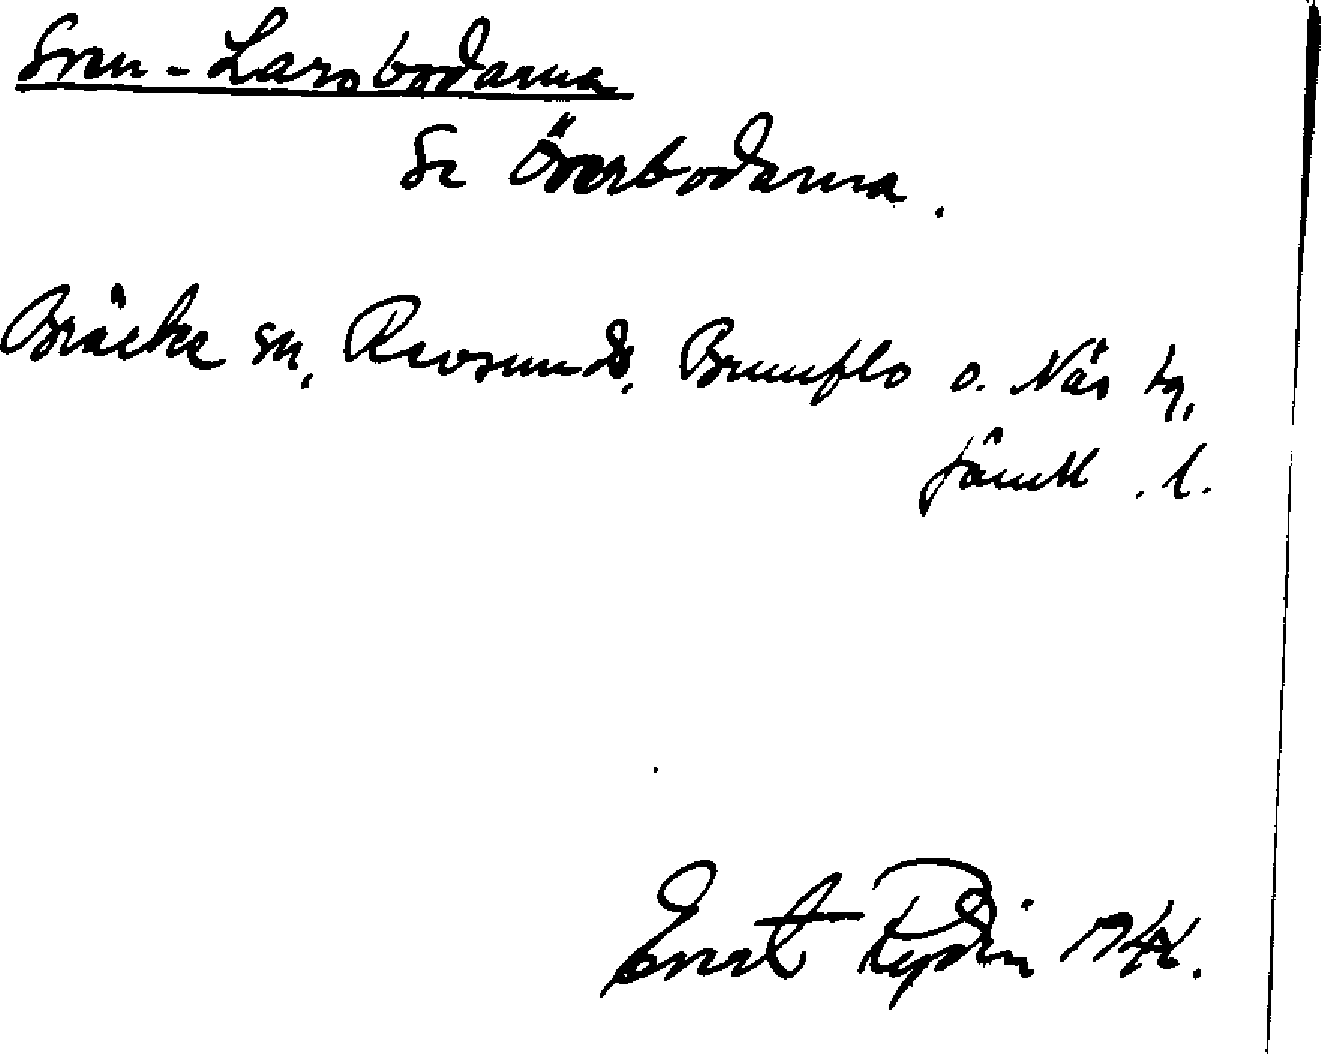 Sven-Larsbodarna
Se Överbodarna.
Bräcke sn, Revsunds, Brunflo o. Näs tg,
Jämtl. l.
Ernst Rydin